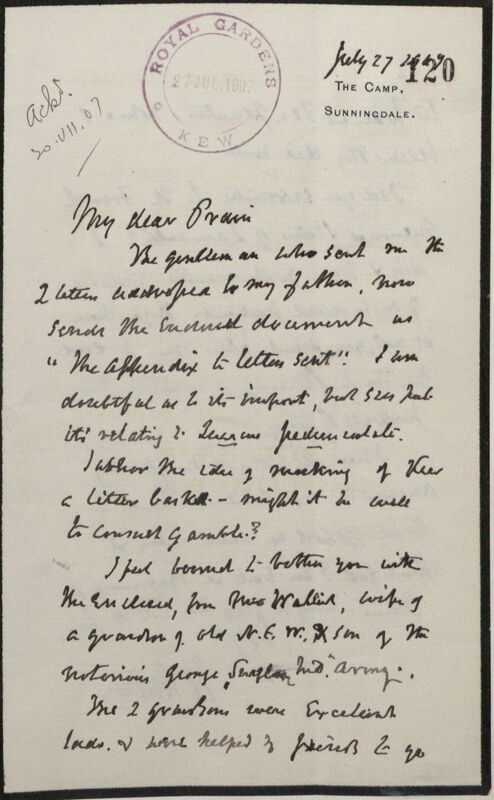 ROYAL GARDENS
27 JUL 1907
KEW
Ackd.
30.VII.07
July 27 1907
120
THE CAMP,
SUNNINGDALE.
My dear Prain
The gentleman who sent me the
2 letters addressed to my father, now
sends the enclosed document as
"The Appendix to letters sent". I am
doubtful as to its import, but sees that
it's relating to Quercus pedunculata.
I abhor the idea of making of Kew
a litter basket – might it be well
to consult Gamble?
I feel bound to bother you with
the enclosed, from Mrs Wallich, wife of
a grandson of old N.E.W., son of the
notorious George, Surgeon, Ind. Army.
The 2 grandsons were excellent
lads. & were helped by friends to go